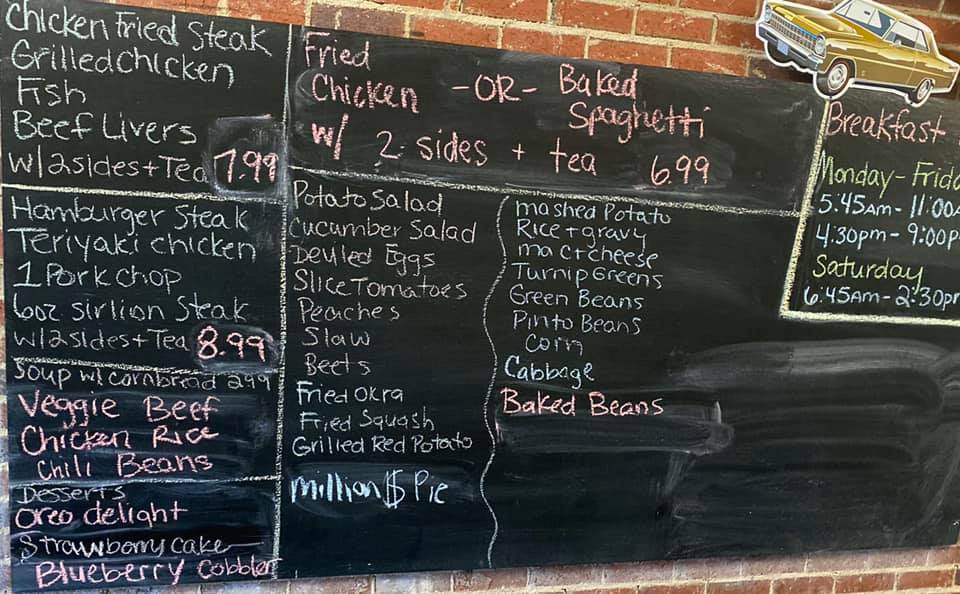 Chicken Fried Steak
Grilled Chicken
Fish
Beef Livers
w/2sides+Tea 7.99
Hamburger Steak
Teriyaki chicken
1 Pork chop
6oz sirlion Steak
w/2sides+Tea 8.99
Soup w/ cornbread 299
Veggie Beef
Chicken Rice
Chili Beans
Desserts
Oreo delight
Strawberry cake
Blueberry Cobbler
Fried
Chicken -OR- Baked
Spaghetti
w/ 2 sides + tea 6.99
Potato Salad
Cucumber Salad
Deviled Eggs
Slice Tomatoes
Peaches
Slaw
Beets
Fried Okra
Fried Squash
Grilled Red Potato
million $ Pie
mashed Potato
Rice + gravy
mac + cheese
Turnip Greens
Green Beans
Pinto Beans
Corn
Cabbage
Baked Beans
Breakfast
Monday-
5:45Am-11:00
4:30pm-9:00p
Saturday
6:45Am-2:30p